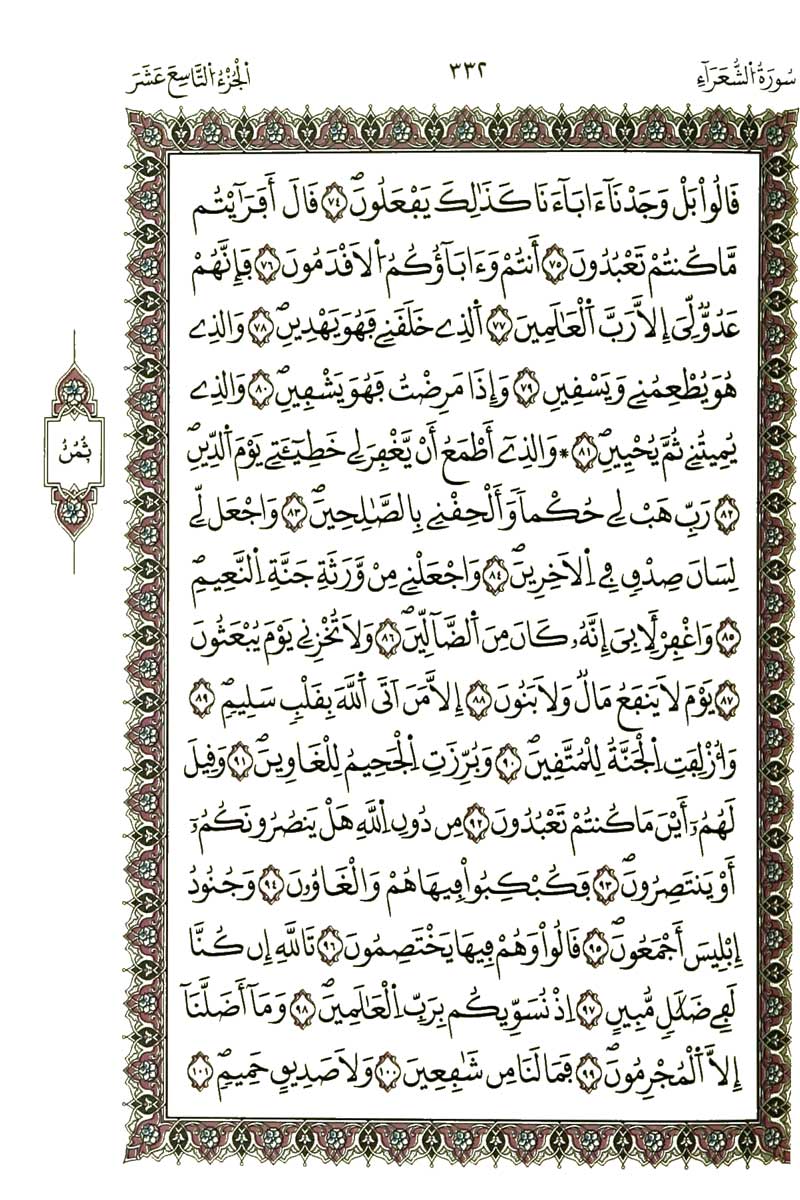 سُورَةُ الشُّعَرَآءِ
٣٣٢
الْجُزْءُ التَّاسِعَ عَشَرَ
قَالُواْ بَلْ وَجَدْنَآ ءَابَآءَنَا كَذَٰلِكَ يَفْعَلُونَۖ ٧٤ قَالَ أَفَرَٰٓيْتُم
مَّا كُنتُمْ تَعْبُدُونَ ٧٥ أَنتُمْ وَءَابَآؤُكُمُ اُلَاقْدَمُونَ ٧٦ فَإِنَّهُمْ
عَدُوٌّ لِّىَ إِلَّا رَبَّ اَلْعَٰلَمِينَ ٧٧ اَلذِے خَلَقَنِے فَهُوَ يَهْدِينِۖ ٧٨ وَالذِے
هُوَ يُطْعِمُنِے وَيَسْقِينِ ٧٩ وَإِذَا مَرِضْتُ فَهُوَ يَشْفِينِۖ ٨٠ وَالذِے
يُمِيتُنِے ثُمَّ يُحْيِينِۖ ٨١ * وَالذِےٓ أَطْمَعُ أَنْ يَّغْفِرَ لِے خَطِيٓـَٔتِے يَوْمَ اَلدِّينِۖ
٨٢ رَبِّ هَبْ لِے حُكْماً وَأَلْحِقْنِے بِالصَّٰلِحِينَۖ ٨٣ وَاجْعَل لِّے
لِسَانَ صِدْقٍ فِے اِلَاخِرِينَۖ ٨٤ وَاجْعَلْنِے مِنْ وَّرَثَةِ جَنَّةِ اِلنَّعِيمِۖ
٨٥ وَاغْفِرْ لِأَبِىَ إِنَّهُۥ كَانَ مِنَ اَلضَّآلِّينَۖ ٨٦ وَلَا تُخْزِنِے يَوْمَ يُبْعَثُونَ
٨٧ يَوْمَ لَا يَنفَعُ مَالٌ وَلَا بَنُونَ ٨٨ إِلَّا مَنَ اَتَى اَللَّهَ بِقَلْبٍ سَلِيمٍۖ ٨٩
وَأُزْلِفَتِ اِلْجَنَّةُ لِلْمُتَّقِينَۖ ٩٠ وَبُرِّزَتِ اِلْجَحِيمُ لِلْغَاوِينَۖ ٩١ وَقِيلَ
لَهُمُۥٓ أَيْنَ مَا كُنتُمْ تَعْبُدُونَ ٩٢ مِن دُونِ اِللَّهِ هَلْ يَنصُرُونَكُمُۥٓ
أَوْ يَنتَصِرُونَۖ ٩٣ فَكُبْكِبُواْ فِيهَا هُمْ وَالْغَاوُۥنَ ٩٤ وَجُنُودُ
إِبْلِيسَ أَجْمَعُونَۖ ٩٥ قَالُواْ وَهُمْ فِيهَا يَخْتَصِمُونَ ٩٦ تَاللَّهِ إِن كُنَّا
لَفِے ضَلَٰلٍ مُّبِينٍ ٩٧ اِذْ نُسَوِّيكُم بِرَبِّ اِلْعَٰلَمِينَۖ ٩٨ وَمَآ أَضَلَّنَآ
إِلَّا اَلْمُجْرِمُونَۖ ٩٩ فَمَا لَنَا مِن شَٰفِعِينَ ١٠٠ وَلَا صَدِيقٍ حَمِيمٍۖ ١٠١
ثُمُنُ